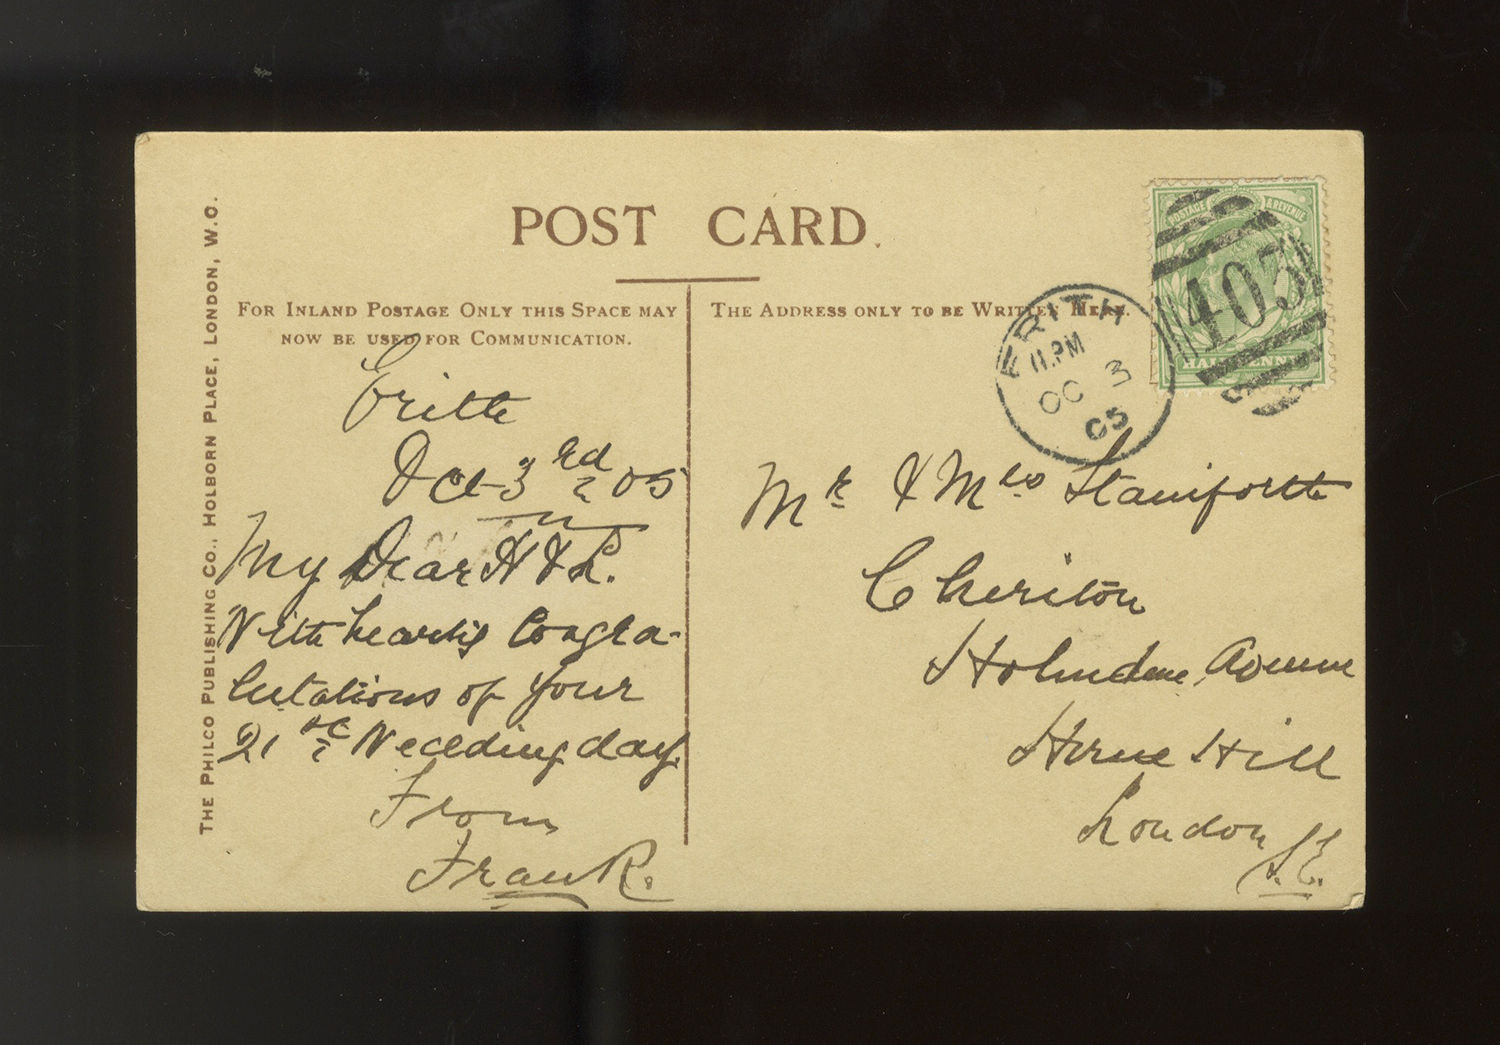 POST CARD
THE PHILCO PUBLISHING CO., HOLBORN PLACE, LONDON, W.C.
FOR INLAND POSTAGE ONLY THIS SPACE MAY
NOW BE USED FOR COMMUNICATION.
THE ADDRESS ONLY TO BE WRITTEN HERE.
POSTAGE & REVENUE
HALFPENNY
403
ERITH
11.PM
OC 3
05
Erith
Oct 3rd 05
My Dear H & L.
With hearty Congra-
tulations of your
21st Wedding day.
From
Frank.
Mr & Mrs Staniforth
Cheriton
Holmdene Avenue
Herne Hill
London
S.E.